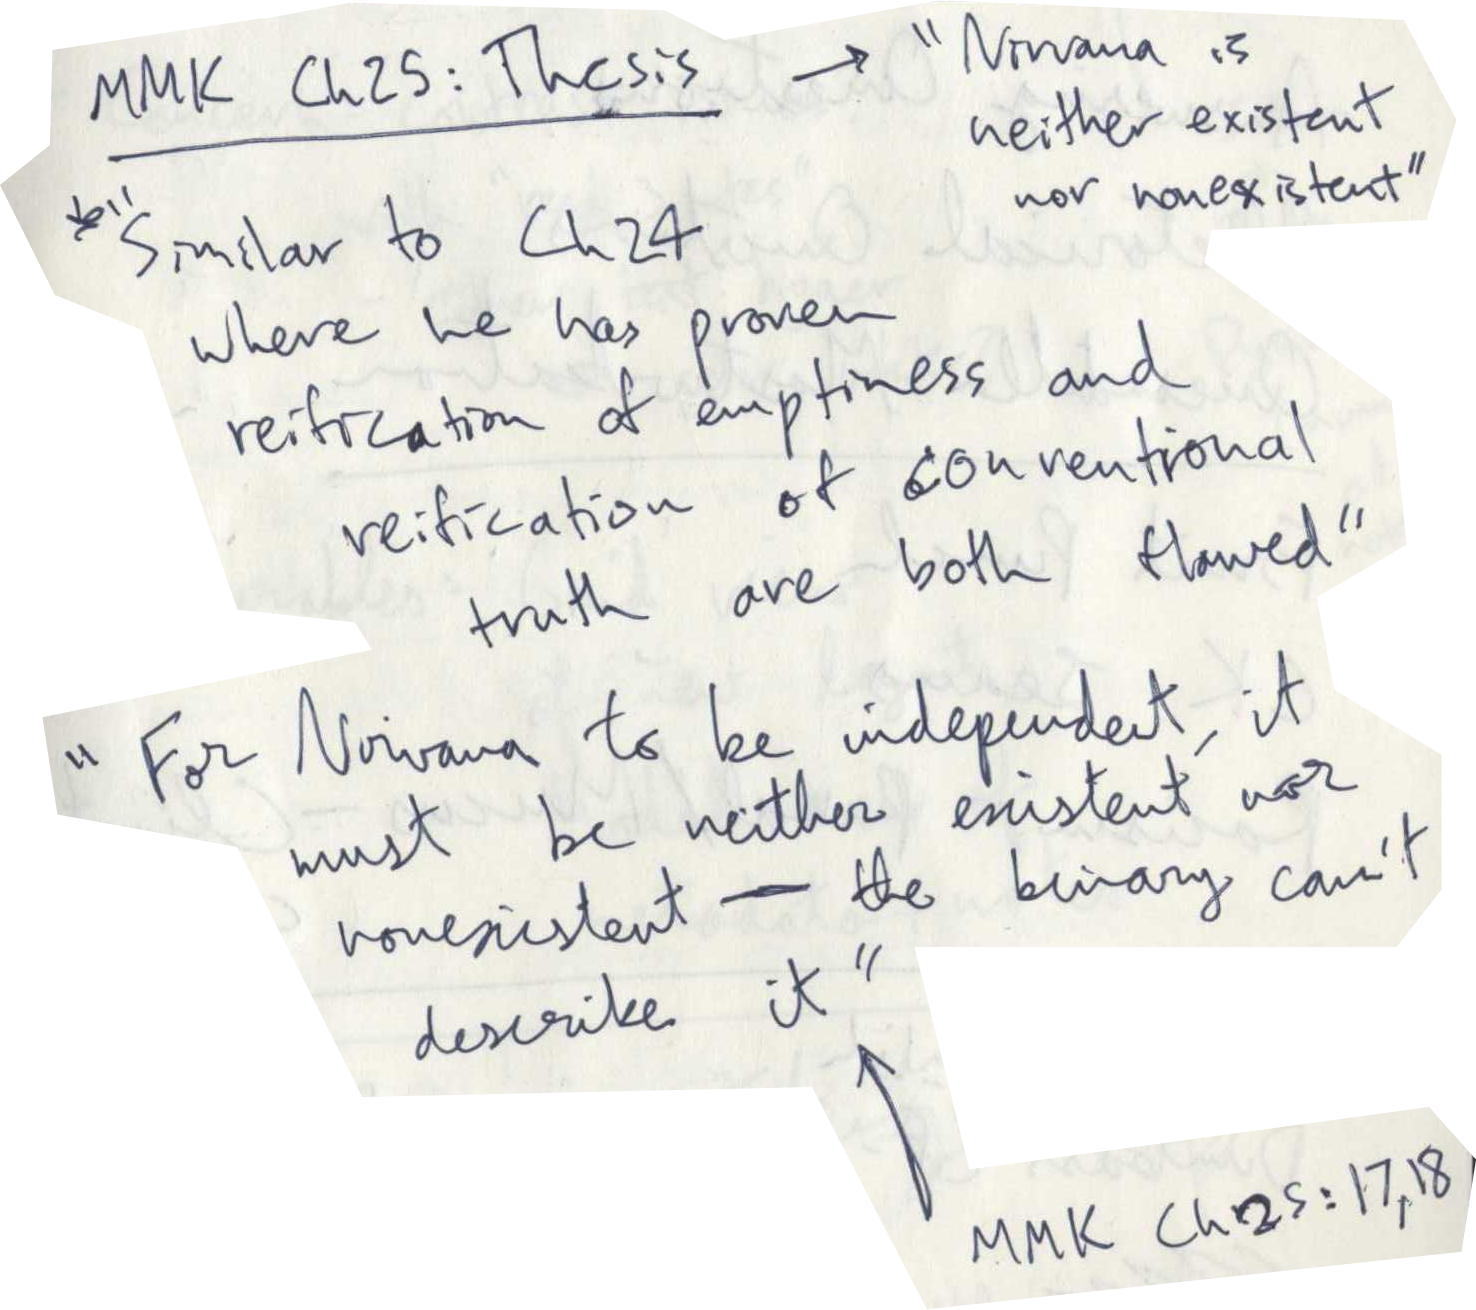 MMK Ch25: Thesis → "Nirvana is
neither existent
nor nonexistent"
*"Similar to Ch24
where he has proven
reification of emptiness and
reification of conventional
truth are both flawed"
"For Nirvana to be independent, it
must be neither existent nor
nonexistent — the binary can't
describe it"
MMK Ch25:17,18